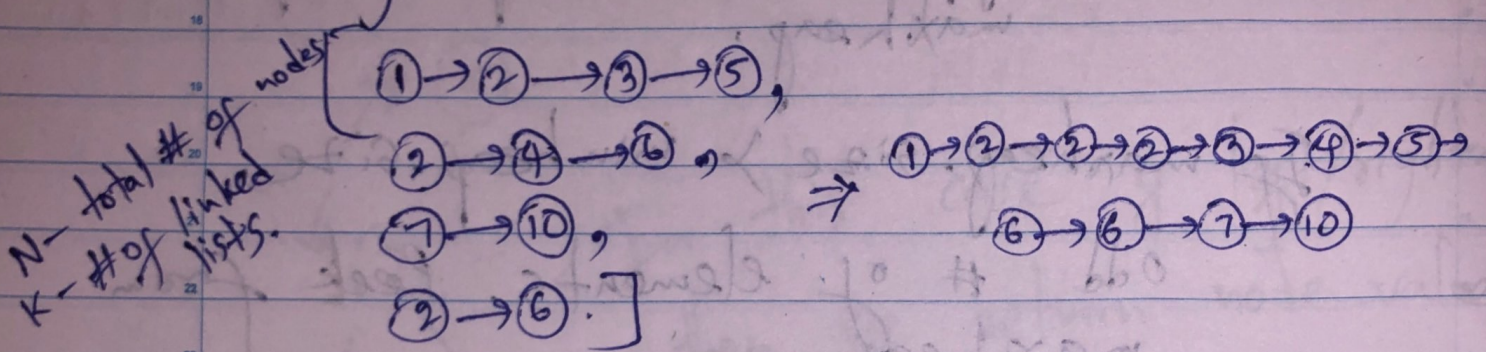 N - total # of nodes
K - # of linked
lists.
[ 1 → 2 → 3 → 5,
2 → 4 → 6,
7 → 10,
2 → 6. ]
⇒ 1 → 2 → 2 → 2 → 3 → 4 → 5 →
6 → 6 → 7 → 10
18
19
20
22